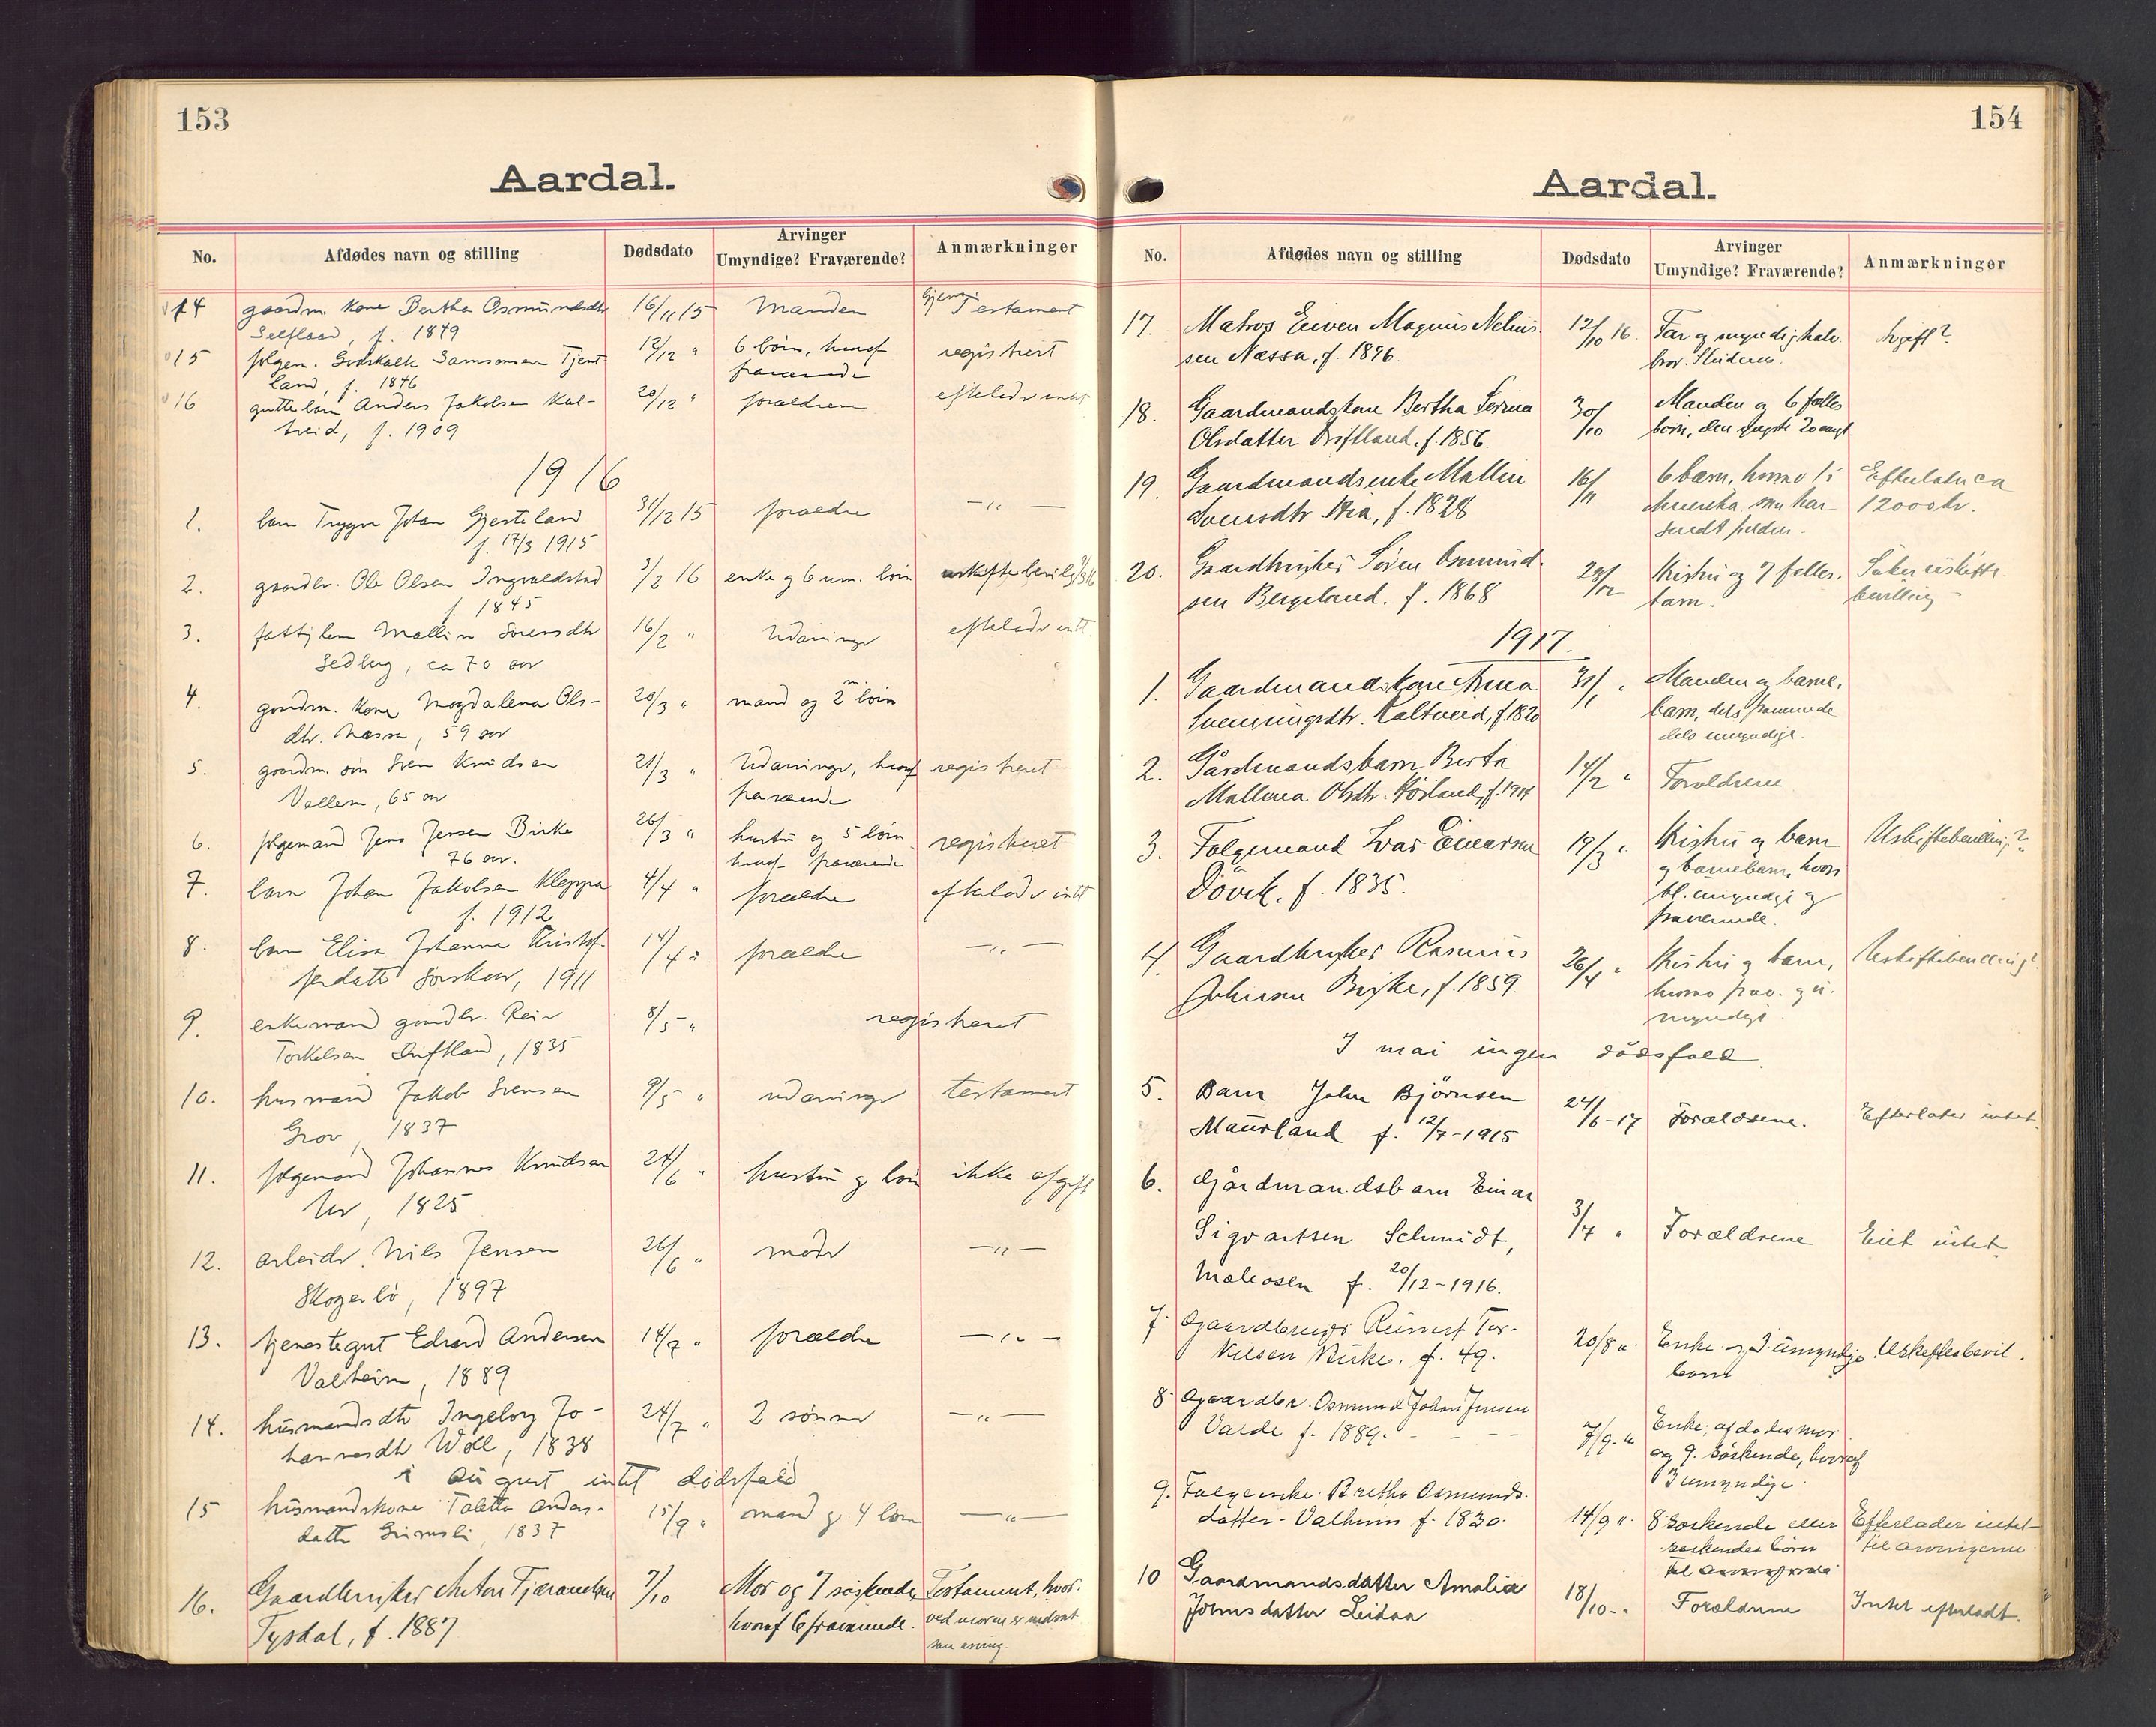 153
Aardal.
No.
Afdødes navn og stilling
Dødsdato
Arvinger
Umyndige? Fraværende?
Anmærkninger
14 gaardm. kone Bertha Osmundsdtr 16/11 15 Manden Gjens. Testament
Selfland, f. 1849
15 følgem. Samsonsen Tjent- 12/12 " 6 børn, hvoraf registrert
land, f. 1846 fraværende
16 guttebarn Anders Jakobsen Kal- 20/12 " forældrene efterlader intet
tveid, f. 1909
1916
1. barn Trygve Johan Gjesteland 31/12 15 forældre —"—
f. 17/3 1915
2. gaardbr. Ole Olsen Ingvaldstad 3/2 16 enke og 6 um. børn uskiftebevilg
f. 1845
3. fattiglem Mallin Sørensdtr 16/2 " Udarvinger efterlader intet
Sedberg, ca 70 aar
4. gaardm. kone Magdalena Ols- 20/3 " mand og 2 m. børn
dtr. Nessa, 59 aar
5. gaardm. søn Sven Knudsen 21/3 " Udarvinger, hvoraf registreret
Vallem, 65 aar fraværende
6. følgemand Jens Jensen Birke 26/3 " hustru og 5 børn registreret
76 aar. hvoraf fraværende
7. barn Johan Jakobsen Kleppa 4/4 " forældre efterlader intet
f. 1912
8. barn Elisa Johanna Kristof- 14/4 " forældre —"—
ferdatter Sørskaar, 1911
9. enkemand gaardbr. Reier 8/5 - " registreret
Torkelsen Driftland, 1835
10. husmand Jakob Svensen 9/5 " udarvinger testament
Grov, 1837
11. følgemand Johannes Knudsen 24/6 " hustru og børn ikke afgift
Ur, 1825
12. arbeider Nils Jensen 26/6 " moder —"—
Skogerbø, 1897
13. tjenestegut Edvard Andersen 14/7 " forældre —"—
Valheim, 1889
14. husmandsdtr Ingeborg Jo- 24/7 " 2 sønner —"—
hannesdtr Woll, 1838
i August intet dødsfald
15 husmandskone Taletta Anders- 15/9 " mand og 4 børn —"—
datter Grimsli, 1837
16. Gaardbruker Anton Tjerandsen 7/10 Mor og 7 søskende, Testament, hvor-
Tysdal, f. 1887 hvoraf 6 fraværende. ved moren er indsat
som arving.
154
Aardal.
No.
Afdødes navn og stilling
Dødsdato
Arvinger
Umyndige? Fraværende?
Anmærkninger
17. Matros Eiven Magnus Nelius- 12/10 16 Far og myndig halv- Avgift?
sen Nessa, f. 1896. bror.
18. Gaardmandskone Bertha Serina 30/10 Manden og 6 fælles
Olsdatter Driftland, f. 1856. børn, den yngste 20 aar
19. Gaardmandsenke Mallin 16/11 6 barn, hvorav 1 i Efterlater ca
Svensdtr. Hia, f. 1828 Amerika som har 12000 kr.
sendt
20. Gaardbruker Søren Osmund- 28/12 Hustru og 7 fælles- Søker uskifte-
sen Bergeland. f. 1868 barn. bevilling
1917.
1. Gaardmandskone Anna 31/1 " Manden og barne-
Sveinungsdtr. Kaltveid, f. 1820 barn, dels fraværende
dels umyndige.
2. Gårdmandsbarn Berta 14/2 " Forældrene
Mallena Olsdtr. Høiland, f. 1914
3. Følgemand Ivar Einarsen 19/3 " Hustru og barn Uskiftebevilling?
Døvik, f. 1835. og barnebarn, hvori
bl. umyndige og
fraværende.
4. Gaardbruker Rasmus 26/4 " Hustru og barn, Uskiftebevilling?
Johnsen Birke, f. 1859. hvorav frav. og u-
myndige.
I mai ingen dødsfald.
5. Barn John Bjørnsen 24/6-17 Forældrene. Efterlater intet.
Maurland f. 12/7-1915
6. Gårdmandsbarn Einar
Sigvartsen Schmidt, 3/7 " Forældrene Eiet intet.
Meleosen f. 20/12-1916.
7. Gaardbruger Reinert Tor- 20/8 ". Enke og 3 umyndige Uskiftebevil.
kelsen Birke. f. 49. børn
8. Gaardbr. Osmund Johan Jensen
Varde f. 1889. 7/9. " Enke, afdødes mor
og 9 søskende, hvoraf
3 umyndige.
9. Følgeenke Bretha Osmunds-
datter - Valheim f. 1830. 14/9 ". 8 søskende eller Efterlader intet
søskendes børn til arvingerne
10 Gaardmandsdatter Amalia 18/10-. Forældrene Intet efterladt.
Johnsdatter Leidaa